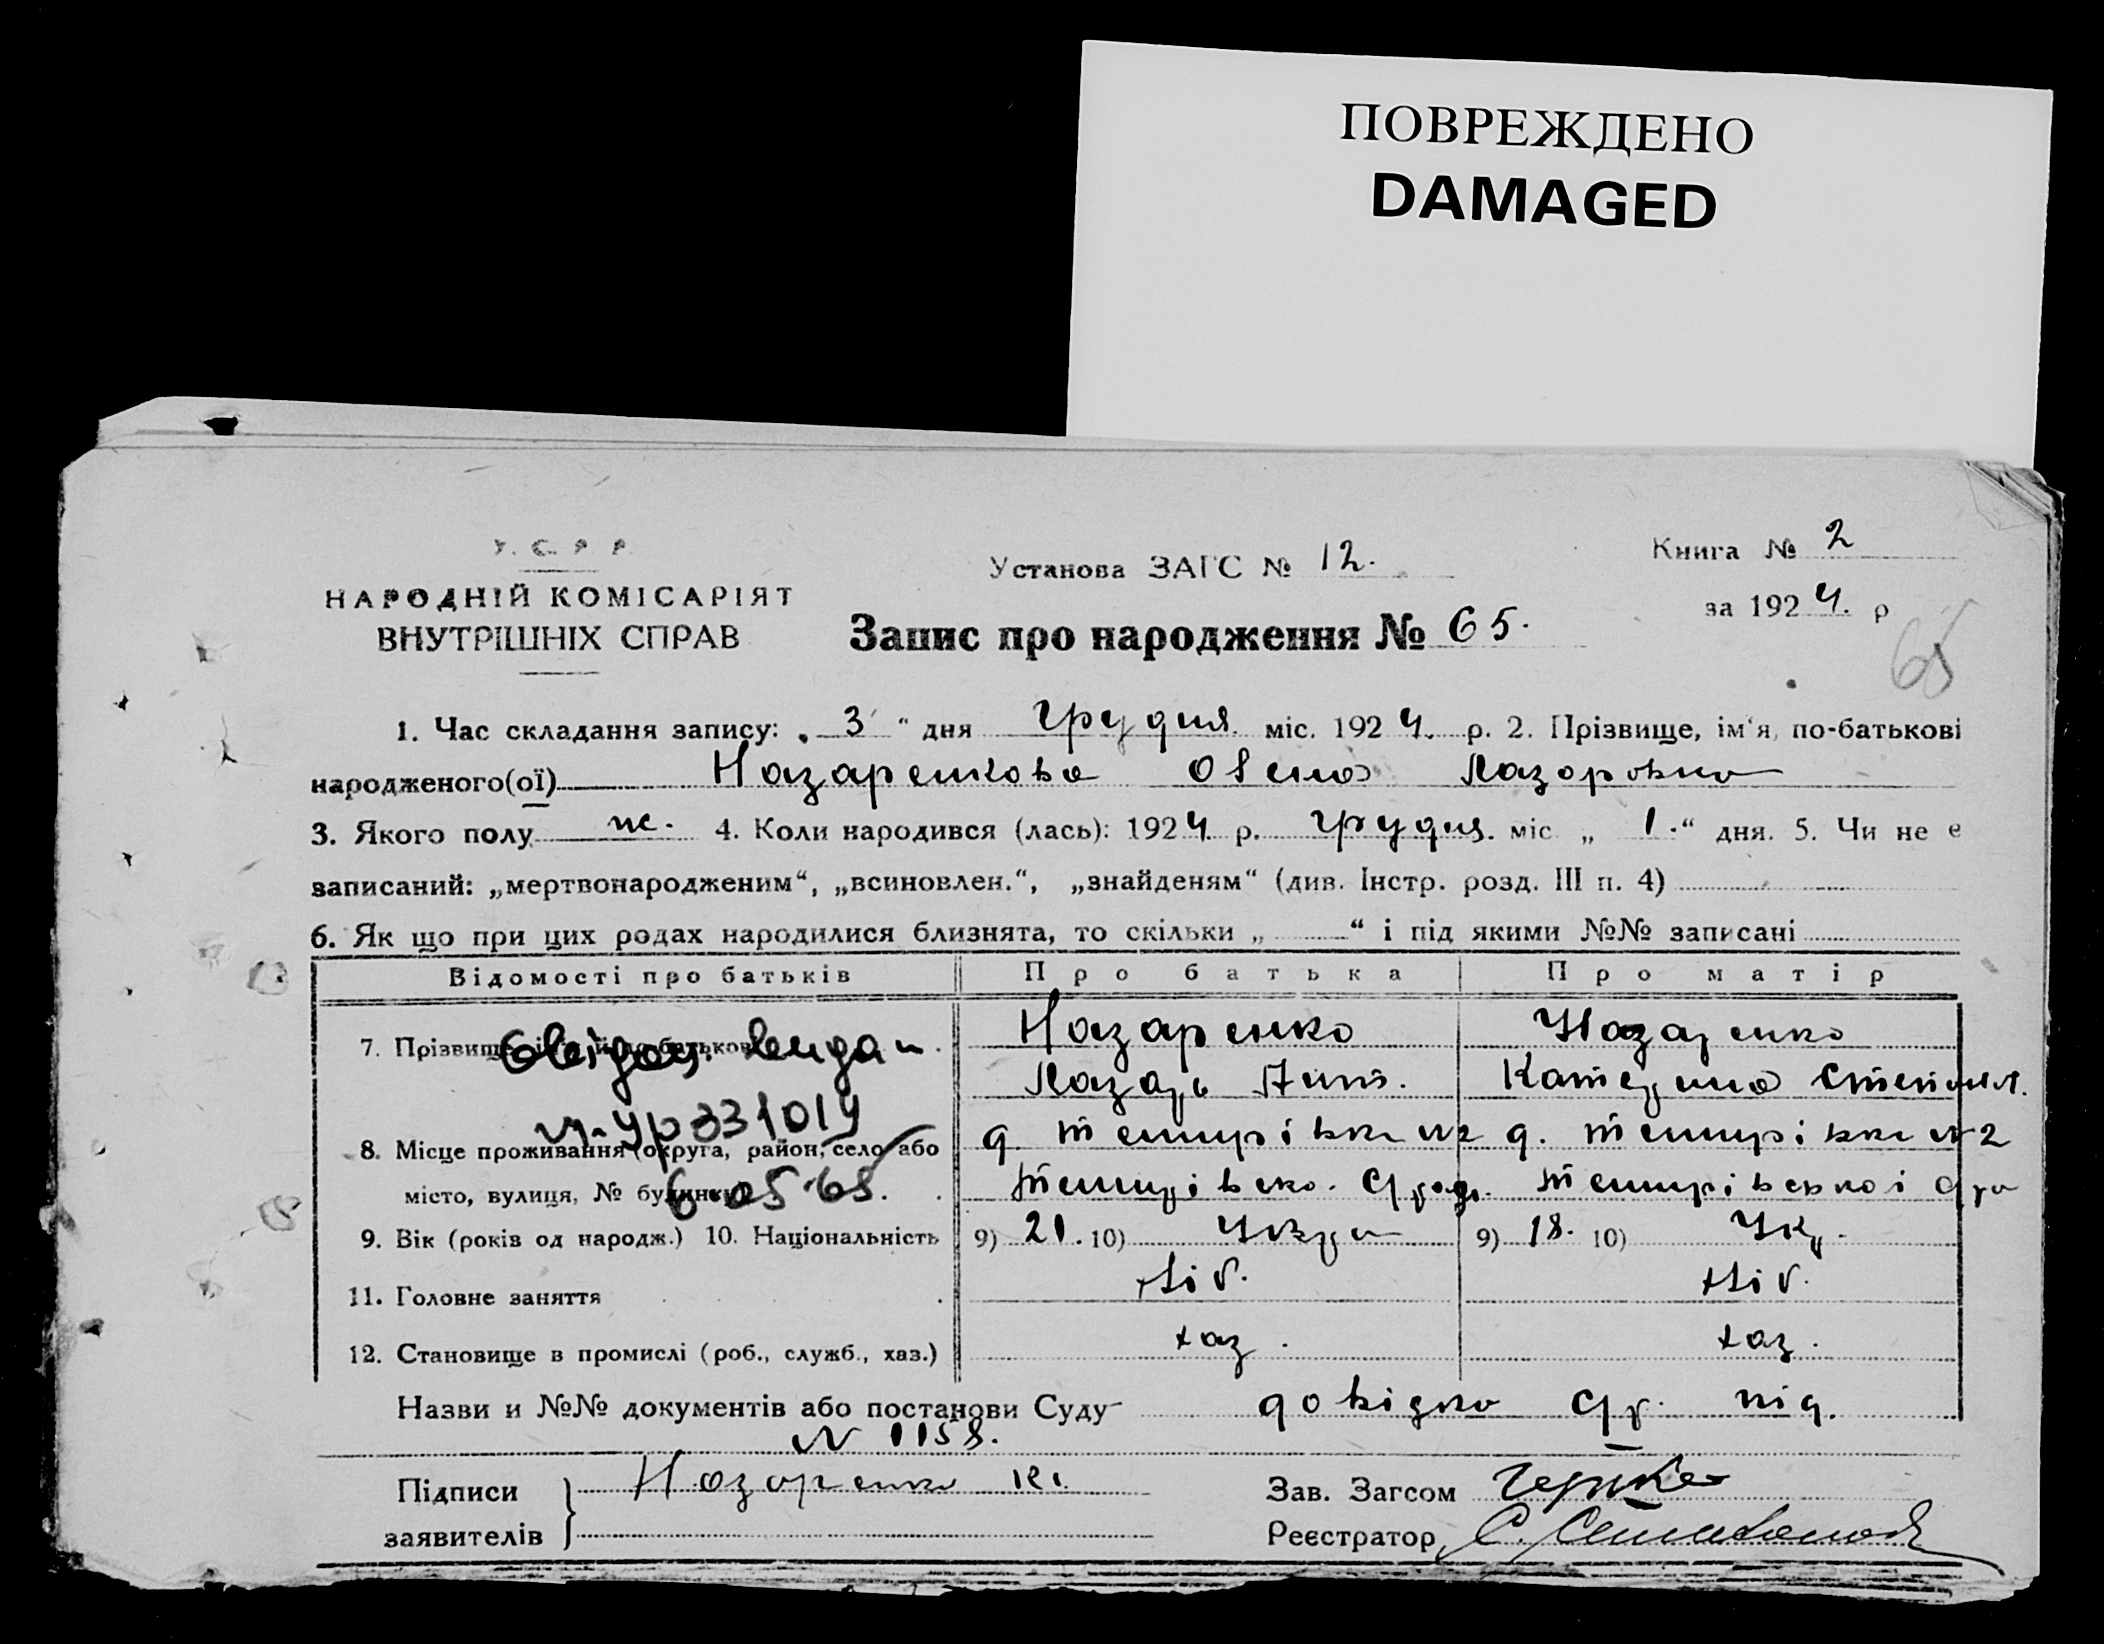 ПОВРЕЖДЕНО
DAMAGED
У. С. Р. Р.
НАРОДНІЙ КОМІСАРІЯТ
ВНУТРІШНІХ СПРАВ
Установа ЗАГС № 12.
Книга № 2
за 1924. р
Запис про народження № 65.
65
1. Час складання запису: „ 3 “ дня грудня міс. 1924. р. 2. Прізвище, ім'я, по-батькові
народженого(ої) Назаренкова Олена Лазоровна
3. Якого полу ж. 4. Коли народився (лась): 1924 р. грудня. міс „ 1. “ дня. 5. Чи не є
записаний: „мертвонародженим“, „всиновлен.“, „знайденям“ (див. Інстр. розд. III п. 4)
6. Як що при цих родах народилися близнята, то скільки „ “ і під якими №№ записані
Відомості про батьків Про батька Про матір
7. Прізвище, ім'я й по-батькові Назаренко Назаренко
Лазарь Ант. Катерина Степан.
8. Місце проживання (округа, район, село або
місто, вулиця, № будинку)
6 05.65.
9. Вік (років од народж.) 10. Національність 9) 21. 10) Укра 9) 18. 10) Укр.
11. Головне заняття хліб. хліб.
12. Становище в промислі (роб., служб., хаз.) хаз. хаз.
Назви и №№ документів або постанови Суду довідка
N 1158.
Підписи Назаренко Зав. Загсом
заявителів Реєстратор